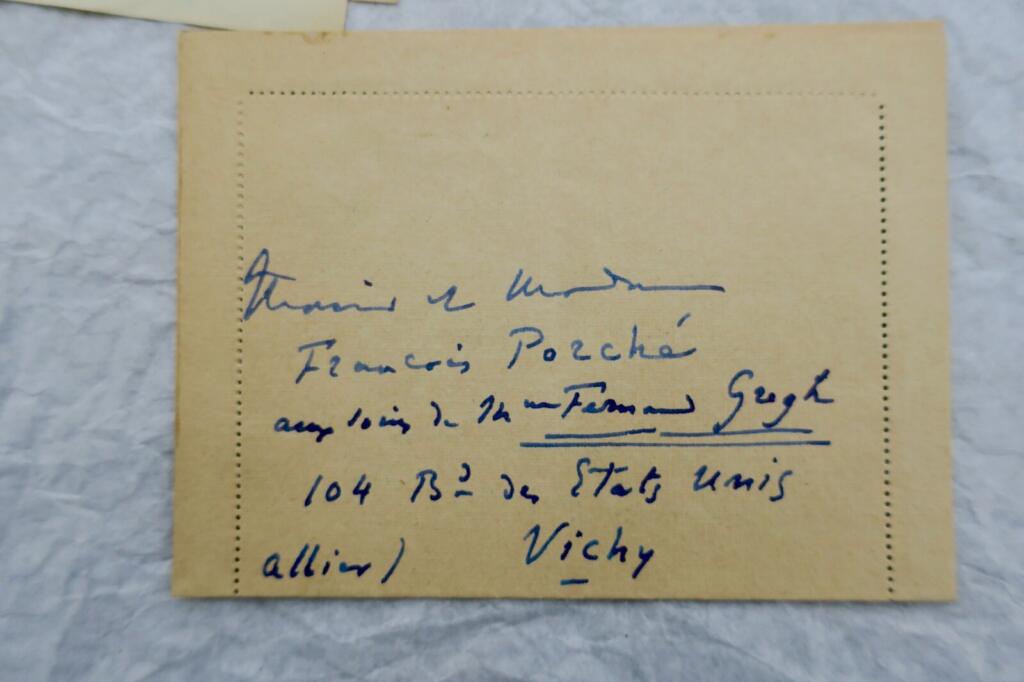 Monsieur et Madame
François Porché
aux soins de Mme Fernand Gregh
104 Bd des Etats Unis
allier) Vichy